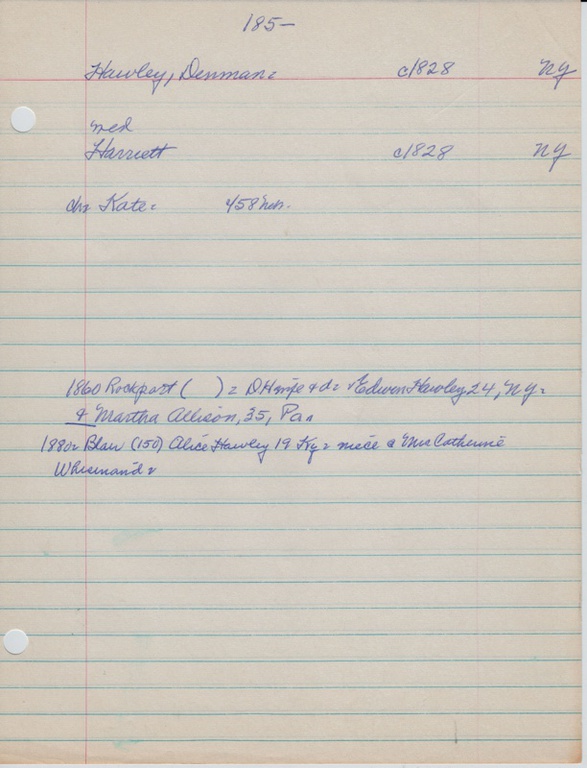 185-
Hawley, Denman= c1828 NY
med
Harriett c1828 NY
ch= Kate=
1860 Rockport ( ) = DH & d= & Edwin Hawley 24, NY=
& Martha Allison, 35, Pa=
1880= Blair (150) Alice Hawley 19 Ky= niece Mrs Catherine
Whisenand=